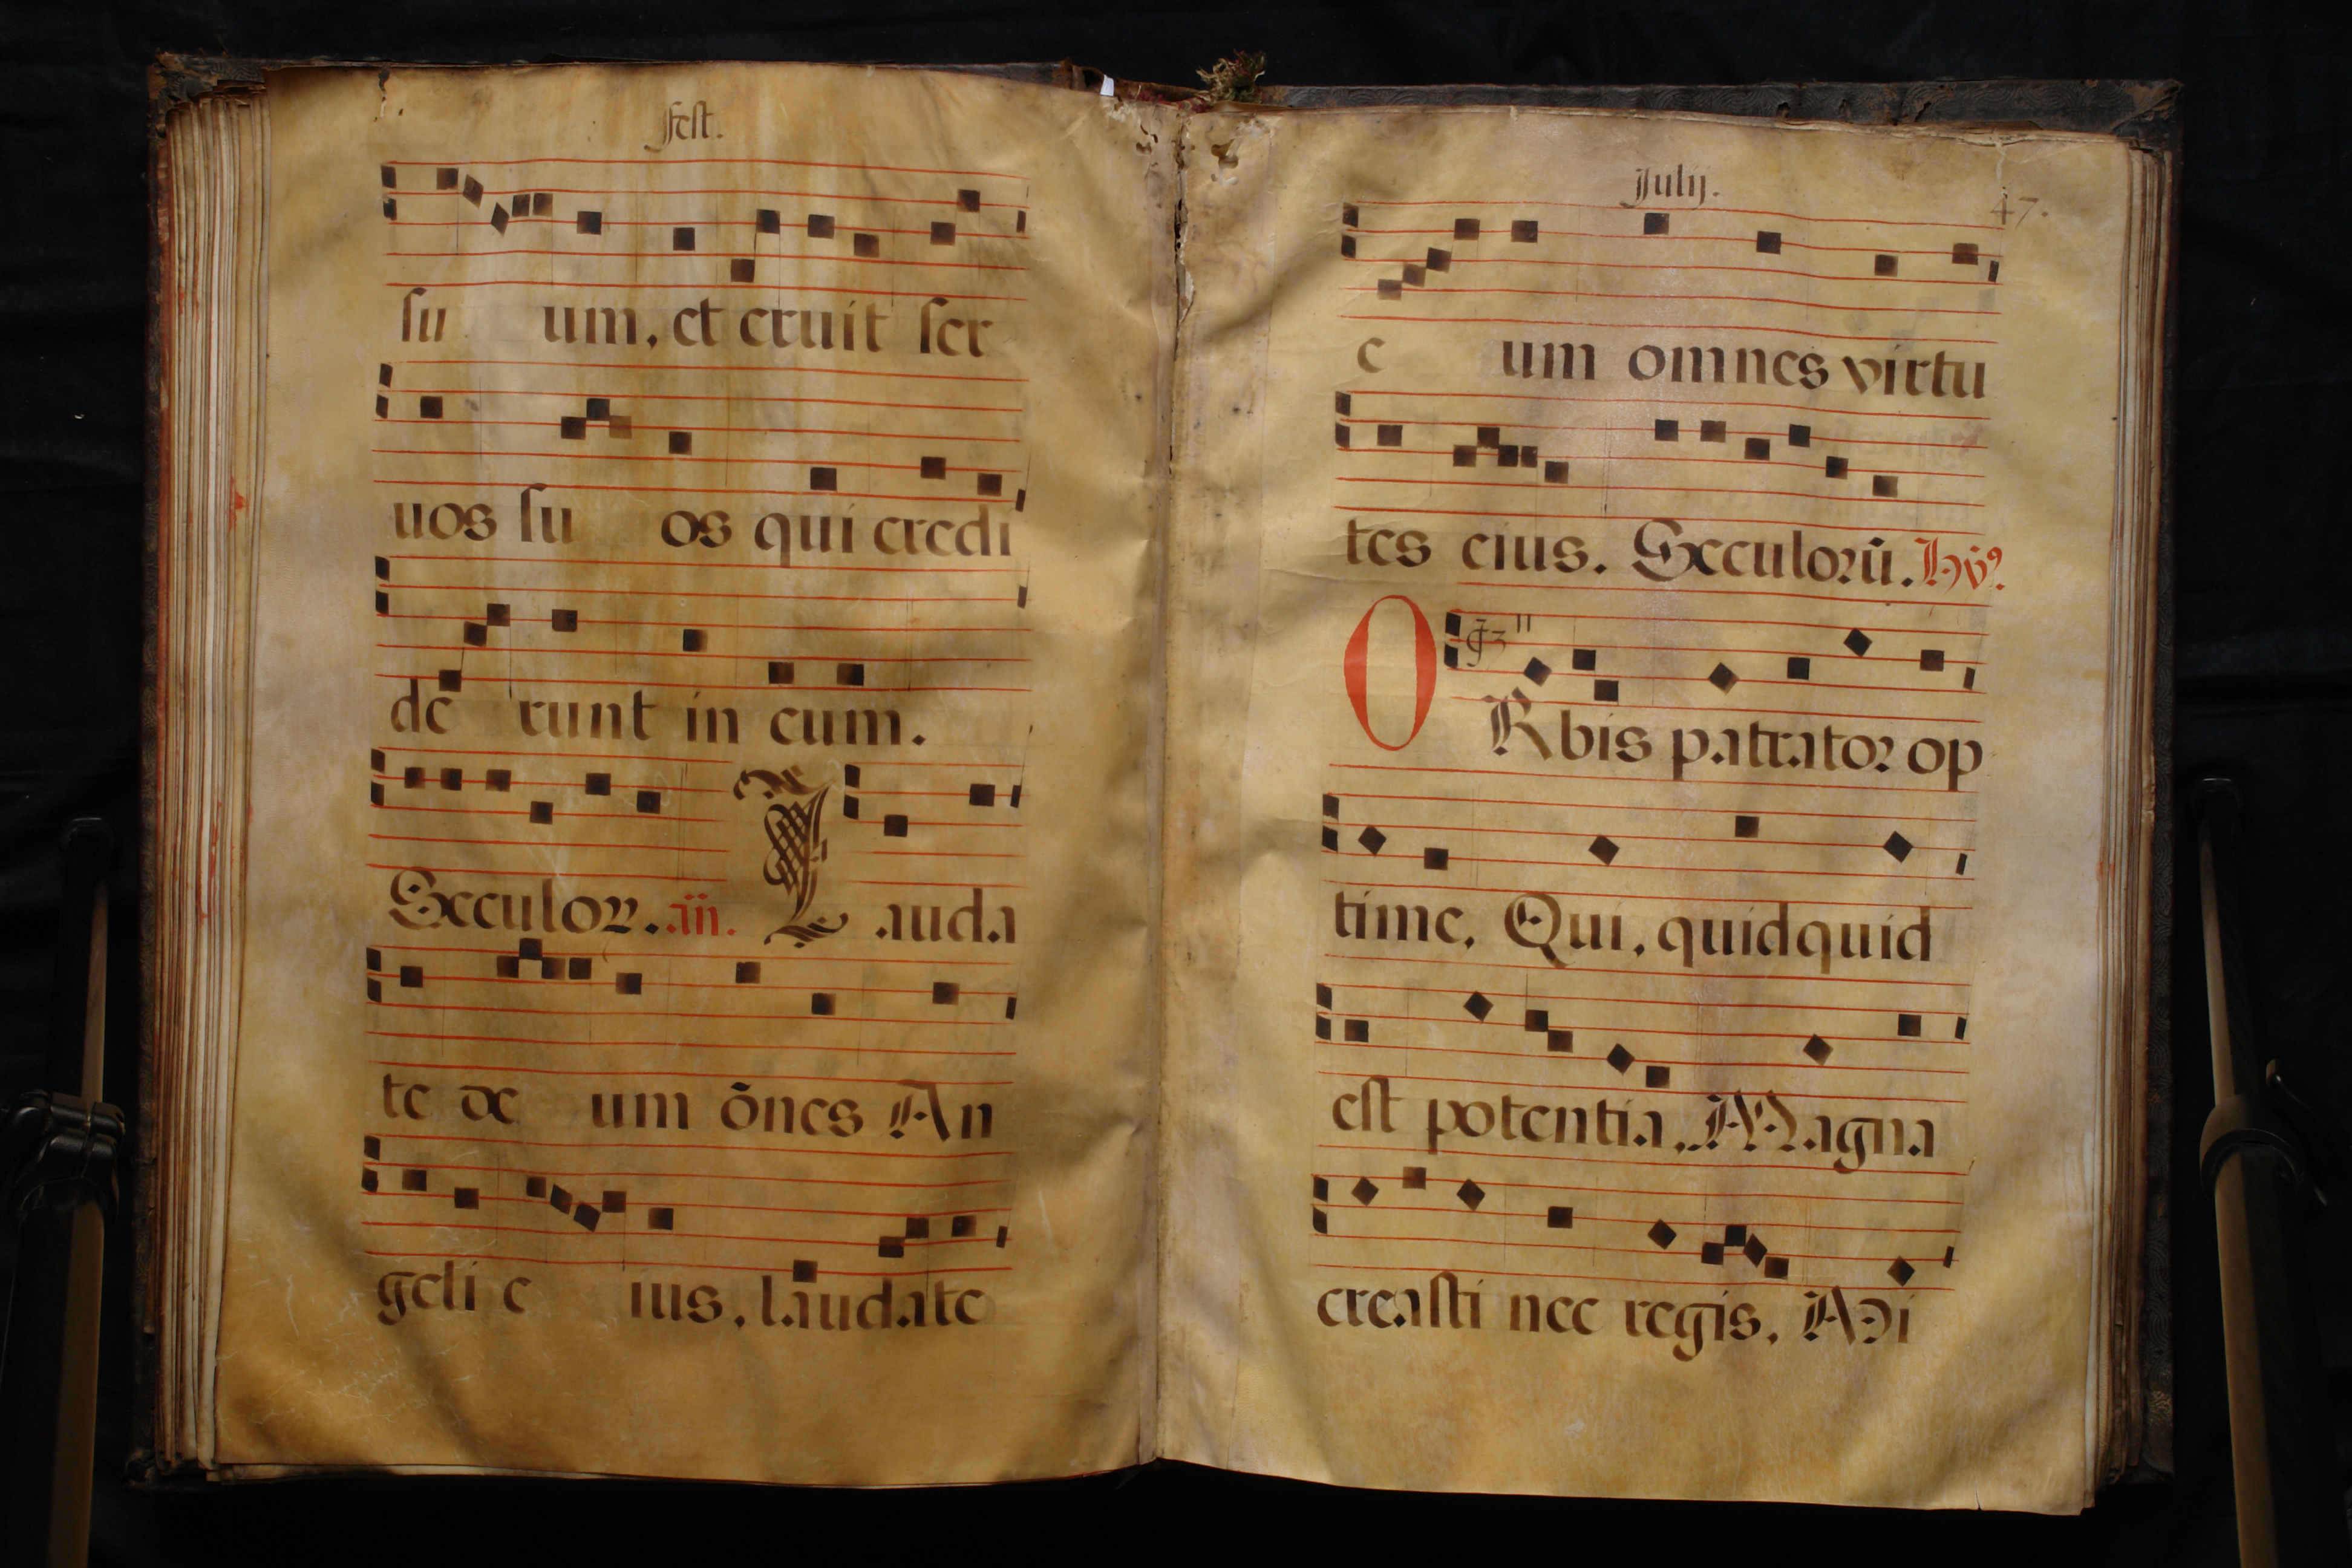 Fest.
su um, et eruit ser
uos su os qui credi
de runt in eum.
Seculoꝝ. añ. L auda
te De um õnes An
geli e ius, laudate
Julij. 47.
e um omnes virtu
tes eius. Seculorũ. Hỹꝰ.
O Rbis patrator op
time, Qui, quidquid
est potentia, Magna
creasti nec regis, Mi